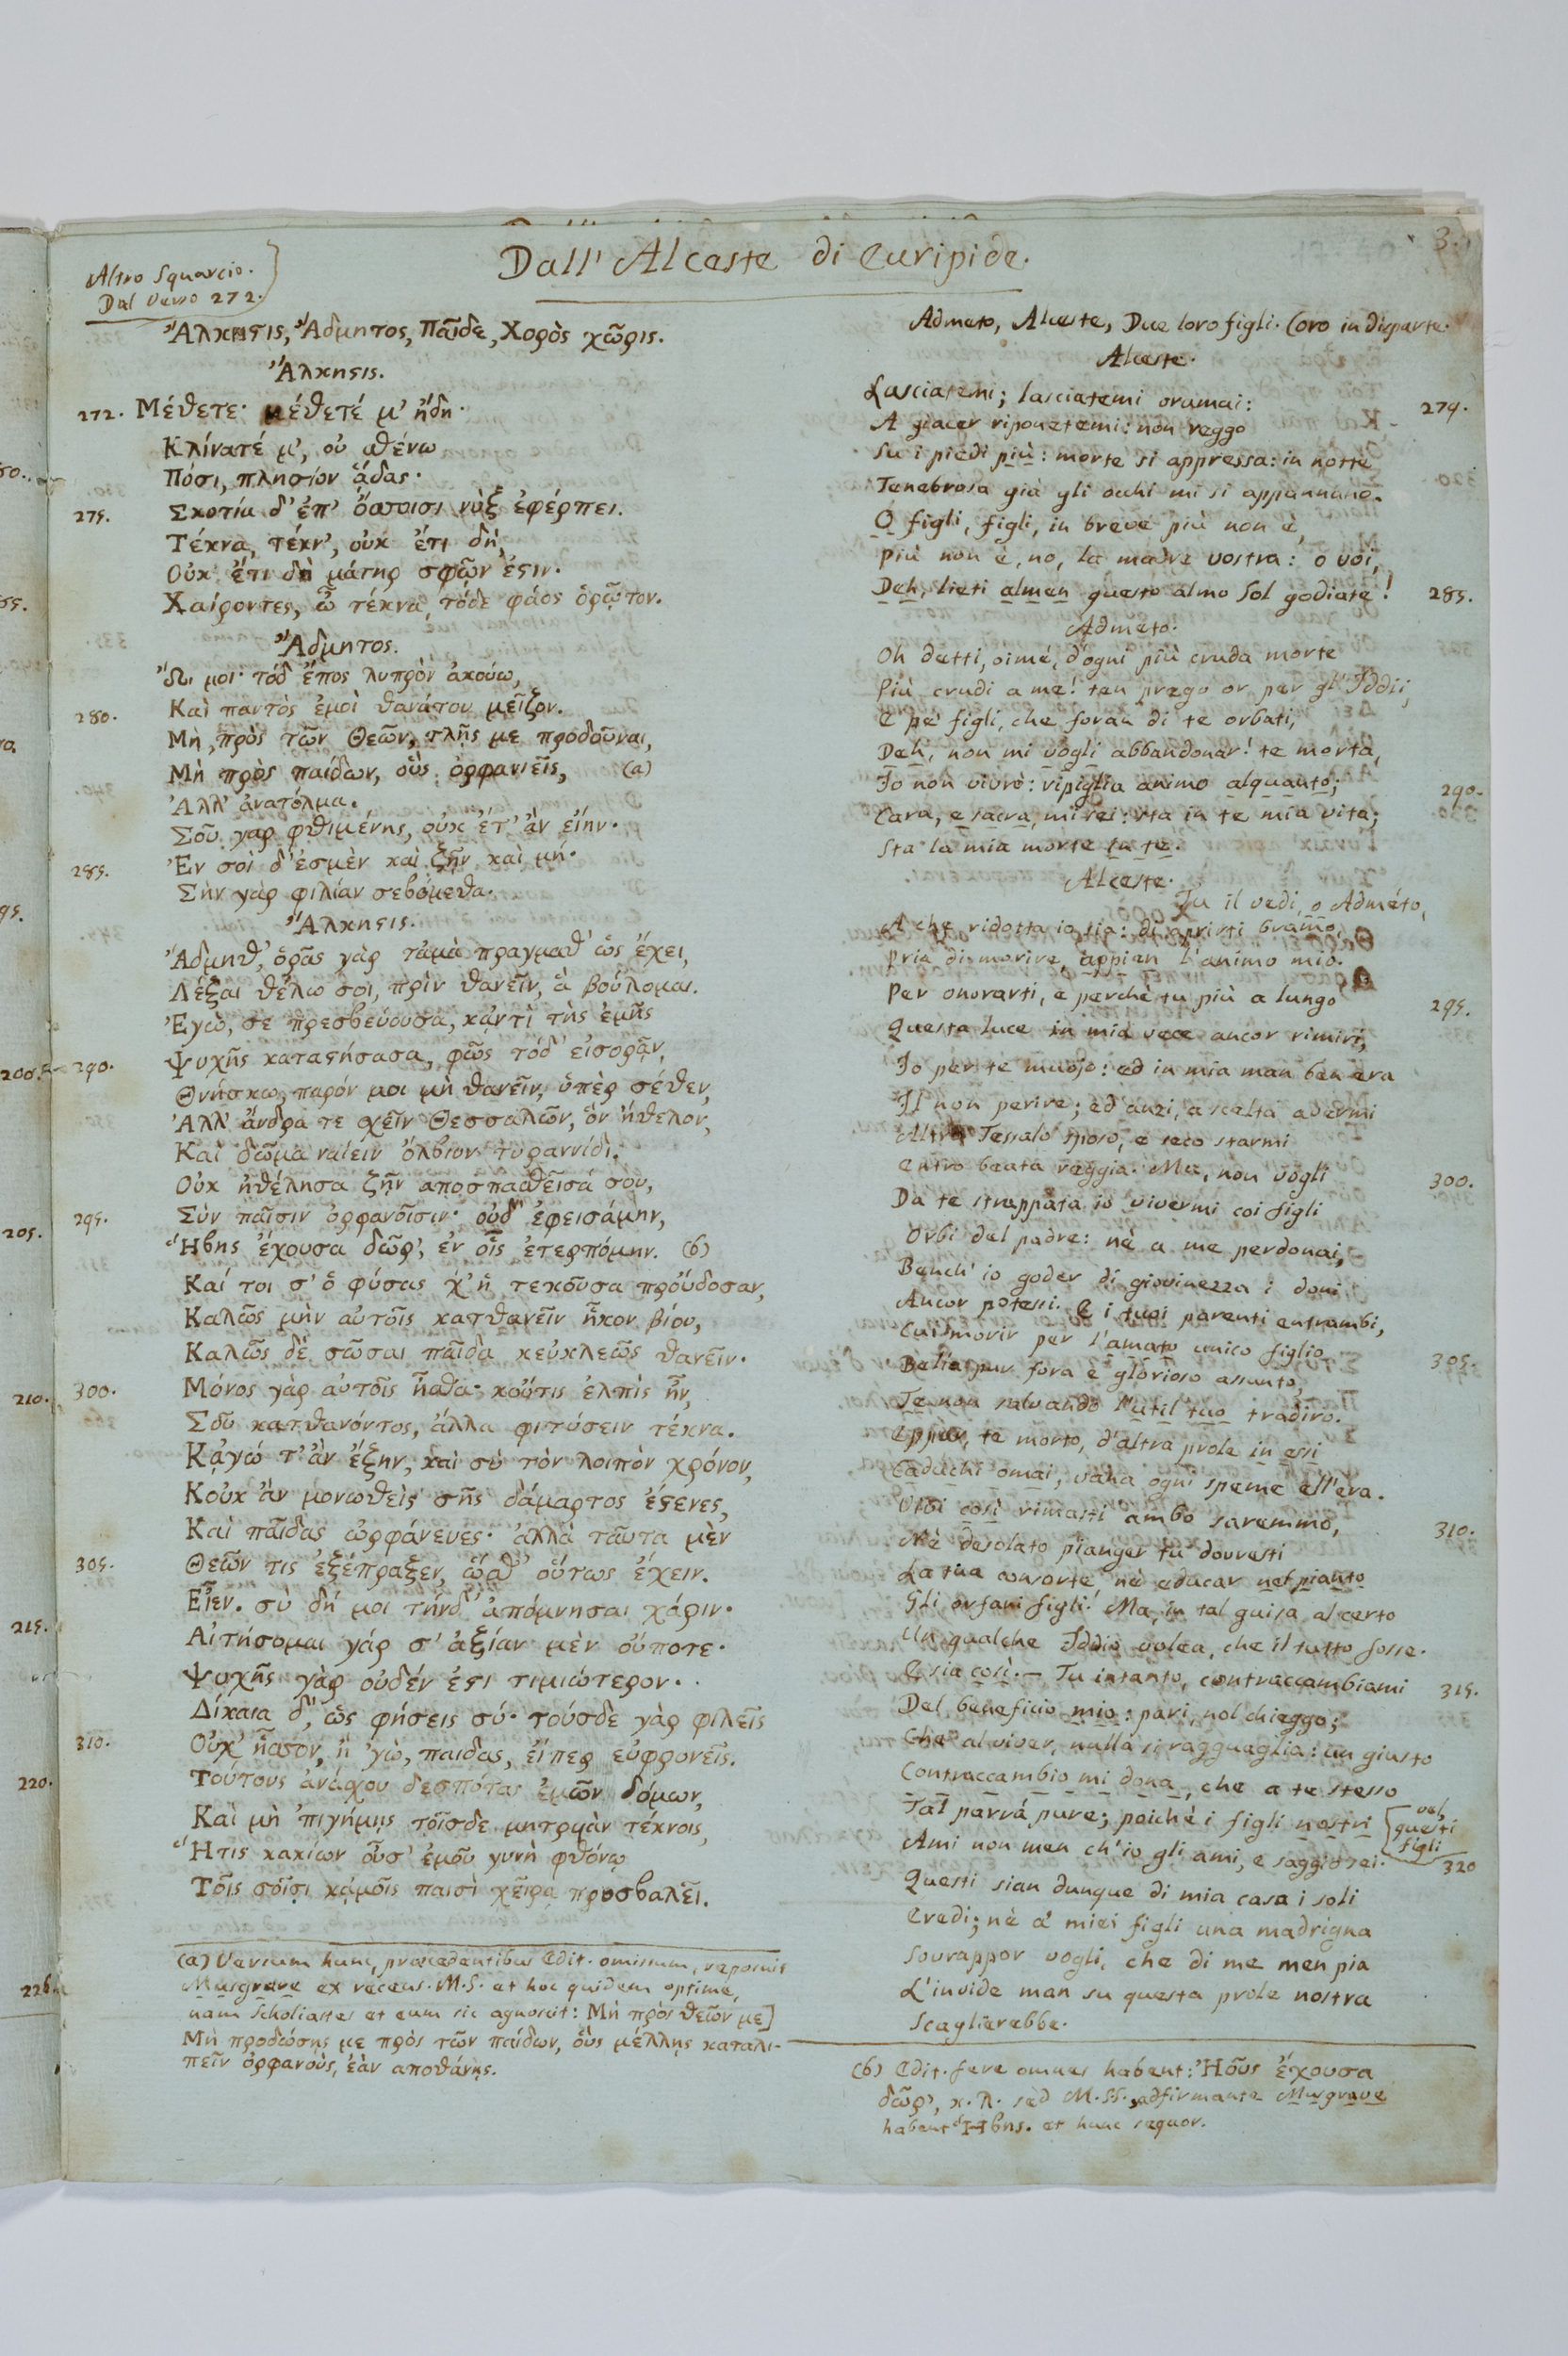 Dall' Alceste di Euripide.
3.
Altro Squarcio.
Dal Verso 272.
Ἄλκηστις, Ἄδμητος, Παῖδε, Χορὸς χῶρις.
Ἄλκηστις.
272. Μέθετε· μέθετέ μ' ἤδη·
Κλίνατέ μ', οὐ σθένω
Πόσι, πλησίον ᾅδας·
275. Σκοτία δ' ἐπ' ὄσσοισι νὺξ ἐφέρπει.
Τέκνα, τέκν', οὐκ ἔτι δὴ,
Οὐκ ἔτι δὴ μάτηρ σφῶν ἐστιν.
Χαίροντες, ὦ τέκνα, τόδε φάος ὁρῷτον.
Ἄδμητος.
Ὤι μοι· τόδ' ἔπος λυπρὸν ἀκούω,
280. Καὶ παντὸς ἐμοὶ θανάτου μεῖζον.
Μὴ, πρὸς τῶν Θεῶν, τλῇς με προδοῦναι,
Μὴ πρὸς παίδων, οὓς ὀρφανιεῖς, (a)
Ἀλλ' ἀνατόλμα.
Σοῦ γαρ φθιμένης, οὐκ ἔτ' ἂν εἴην·
285. Ἐν σοὶ δ' ἐσμὲν καὶ ζῆν καὶ μή·
Σὴν γὰρ φιλίαν σεβόμεθα.
Ἄλκηστις.
Ἄδμηθ', ὁρᾷς γὰρ τἀμὰ πραγμαθ' ὡς ἔχει,
Λέξαι θέλω σοι, πρὶν θανεῖν, ἃ βούλομαι.
Ἐγὼ, σε πρεσβεύουσα, κᾀντὶ τῆς ἐμῆς
290. Ψυχῆς καταστήσασα, φῶς τόδ' εἰσορᾷν,
Θνήσκω, παρόν μοι μὴ θανεῖν, ὑπὲρ σέθεν,
Ἀλλ' ἄνδρα τε σχεῖν Θεσσαλῶν, ὃν ἤθελον,
Καὶ δῶμα ναίειν ὄλβιον τυραννίδι.
Οὐκ ἠθέλησα ζῇν ἀποσπασθεῖσά σου,
295. Σὺν παῖσιν ὀρφανοῖσιν· οὐδ' ἐφεισάμην,
Ἥβης ἔχουσα δῶρ', ἐν οἷς ἐτερπόμην. (b)
Καί τοι σ' ὁ φύσας χ' ἡ τεκοῦσα προὔδοσαν,
Καλῶς μὴν αὐτοῖς κατθανεῖν ἧκον βίου,
Καλῶς δὲ σῶσαι παῖδα κεὐκλεῶς θανεῖν·
300. Μόνος γὰρ αὐτοῖς ἦσθα· κοὔτις ἐλπὶς ἦν,
Σοῦ κατθανόντος, ἄλλα φιτύσειν τέκνα.
Κᾀγώ τ' ἂν ἔζην, καὶ σὺ τὸν λοιπὸν χρόνον,
Κοὐκ ἂν μονωθεὶς σῆς δάμαρτος ἔστενες,
Καὶ παῖδας ὠρφάνευες· ἀλλὰ ταῦτα μὲν
305. Θεῶν τις ἐξέπραξεν, ὥσθ' οὕτως ἔχειν.
Εἶεν. σὺ δή μοι τῆνδ' ἀπόμνησαι χάριν·
Αἰτήσομαι γάρ σ' ἀξίαν μὲν οὔποτε·
Ψυχῆς γὰρ οὐδέν ἐστι τιμιώτερον.
Δίκαια δ', ὡς φήσεις σύ· τούσδε γὰρ φιλεῖς
310. Οὐχ' ἧσσον, ἢ 'γὼ, παιδας, εἴπερ εὐφρονεῖς.
Τούτους ἀνάσχου δεσπότας ἐμῶν δόμων,
Καὶ μὴ 'πιγήμῃς τοῖσδε μητρυιὰν τέκνοις,
Ἥτις κακίων οὖσ' ἐμοῦ γυνὴ φθόνῳ
Τοῖς σοῖσι κᾀμοῖς παισὶ χεῖρα προσβαλεῖ.
(a) Versum hunc, præcedentibus Edit. omissum, reposuit
Musgrave ex recens. M.S. et hoc quidem optime,
nam Scholiastes et eum sic agnoscit: Μὴ πρὸς θεῶν με]
Μὴ προδώσῃς με πρὸς τῶν παίδων, οὓς μέλλῃς καταλι-
πεῖν ὀρφανοὺς, ἐὰν αποθάνῃς.
Admeto, Alceste, Due loro figli. Coro in disparte.
Alceste.
Lasciatemi; lasciatemi oramai: 279.
A giacer riponetemi: non reggo
Su i piedi più: morte si appressa: in notte
Tenebrosa già gli occhi mi si appannano.
O figli, figli, in breve più non è,
Più non è, no, la madre vostra: o voi,
Deh, lieti almen questo almo Sol godiate! 285.
Admeto.
Oh detti, oimè, d'ogni più cruda morte
Più crudi a me! ten prego or per gl' Iddii,
E pe' figli, che foran di te orbati,
Deh, non mi vogli abbandonar! te morta,
Io non vivrò: ripiglia animo alquanto; 290.
Cara, e sacra, mi sei: sta in te mia vita;
Sta la mia morte in te.
Alceste.
Tu il vedi, o Admeto,
A che ridotta io sia: di aprirti bramo,
Pria di morire, appien l'animo mio.
Per onorarti, e perchè tu più a lungo 295.
Questa luce in mia vece ancor rimiri,
Io per te muojo: ed in mia man ben era
Il non perire; ed anzi, a scelta avermi
Altro Tessalo sposo, e seco starmi
Entro beata reggia. Ma, non vogli 300.
Da te strappata io vivermi coi figli
Orbi del padre: nè a me perdonai,
Bench' io goder di giovinezza i doni
Ancor potessi. E i tuoi parenti entrambi,
Cui morir per l'amato unico figlio 305.
Bella pur fora e glorioso assunto,
Te non salvando l'util tuo tradiro.
Eppur, te morto, d'altra prole in essi
Caduchi omai, vana ogni speme ell'era.
Vivi così rimasti ambo saremmo, 310.
Nè desolato pianger tu dovresti
La tua consorte, nè educar nel pianto
Gli orfani figli. Ma, in tal guisa al certo
Un qualche Iddio volea, che il tutto fosse.
E sia così. — Tu intanto, contraccambiami 315.
Del beneficio mio: pari, nol chieggo;
Che al viver, nulla si ragguaglia: un giusto
Contraccambio mi dona, che a te stesso
Tal parrà pure; poichè i figli nostri
vel, questi figli
Ami non men ch'io gli ami, e saggio sei. 320
Questi sian dunque di mia casa i soli
Eredi; nè a' miei figli una madrigna
Sovrappor vogli, che di me men pia
L'invide man su questa prole nostra
Scaglierebbe.
(b) Edit. fere omnes habent: Ἡοῦς ἔχουσα
δῶρ', κ.λ. sed M.SS. adfirmante Musgrave
habent Ἥβης. et hunc sequor.
95.
200.
205.
210.
215.
220.
226.